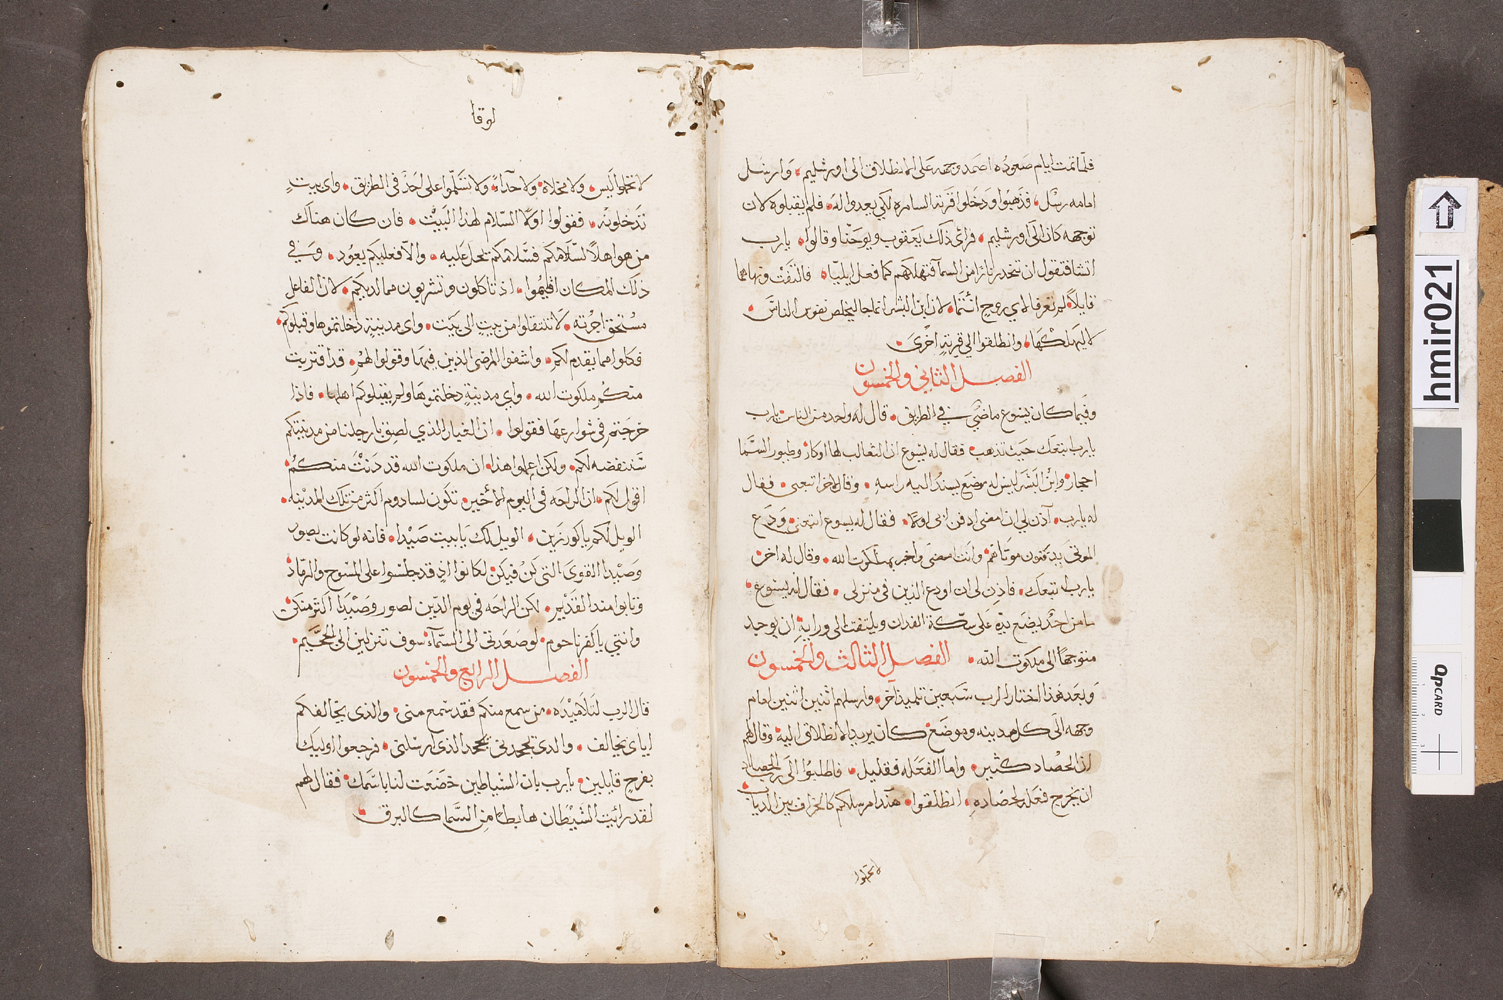 فلما تمت ايام صعوده اصمد وجهه على الانطلاق الى اورشليم وارسل
امامه رسل فذهبوا ودخلوا قرية السامره لكي يعدوا له فلم يقبلوه لان
توجهه كان الى اورشليم فراى ذلك يعقوب ويوحنا وقالوا يارب
اتشا فنقول ان تنحدر نار من السما فتهلكهم كما فعل ايليا فالتفت ونهاهما
قايلا لم تعرفا لاي روح انتما لان ابن البشر انما جا ليخلص نفوس الناس
لا ليهلكها وانطلقوا الي قرية اخرى
الفصل الثاني والخمسون
وفيما كان يسوع ماضي في الطريق قال له واحد من الناس يارب
يارب نتبعك حيث تذهب فقال له يسوع ان الثعالب لها اوكار وطيور السما
احجار وابن البشر ليس له موضع يسند اليه راسه وقال لاخر اتبعني فقال
له يارب آذن لي ان امضي ادفن ابي اولا فقال له يسوع اتبعني ودع
الموتى يدفنون موتاهم وانت امضى واخبر بملكوت الله وقال له اخر
يارب نتبعك فاذن لي ان اودع الذين في منزلي فقال له يسوع
ما من احد يضع يده على سكة الفدان ويلتفت الى ورايه ان يوجد
متوجها الى ملكوت الله الفصل الثالث والخمسون
وبعد هذا اختار الرب سبعين تلميذ آخر وارسلهم اثنين اثنين امام
وجهه الى كل مدينه وموضع كان يريد الانطلاق اليه وقال لهم
ان الحصاد كثير واما الفعله فقليل فاطلبوا الى رب الحصاد
ان يخرج فعله لحصاده انطلقوا هاندا مرسلكم كالخراف بين الدياب
لا تحملوا
لوقا
لا تحملوا كيس ولا مخلاة ولا حذاء ولا تسلموا على احد في الطريق واي بيت
تدخلونه فقولوا اولا السلام لهذا البيت فان كان هناك
من هو اهلا لسلامكم فسلامكم تحل عليه والا فعليكم يعود وفي
ذلك المكان اقيموا اذ تاكلون وتشربون مما لديكم لان الفاعل
مستحق اجرته لا تنتقلوا من بيت الى بيت واي مدينة دخلتموها وقبلوكم
فكلوا مما يقدم لكم واشفوا المرضى الذين فيها وقولوا لهم قد اقتربت
منكم ملكوت الله واي مدينة دخلتموها ولم يقبلوكم اهلها فاذا
خرجتم في شوارعها فقولوا ان الغبار الذي لصق بارجلنا من مدينتكم
سننفضه لكم ولكن اعلموا هذا ان ملكوت الله قد دنت منكم
اقول لكم ان الراحه في اليوم الاخير تكون لسادوم اكثر من تلك المدينه
الويل لكم ياكورزين الويل لك يا بيت صيدا فانه لو كانت بصور
وصيدا القوى التي كن فيكن لكانوا اذ قد جلسوا على المسوح والرماد
وتابوا منذ القدير لكن الراحه في يوم الدين لصور وصيدا اكثر منكن
وانتي ياكفرناحوم لو صعدتي الى السماء سوف تنزلين الى الجحيم
الفصل الرابع والخمسون
قال الرب لتلاميذه من سمع منكم فقد سمع مني والذي يخالفكم
اياي يخالف والذي يجحدني يجحد الذي ارسلني فرجعوا اوليك
بفرح قايلين يارب بان الشياطين خضعت لنا باسمك فقال لهم
لقد رايت الشيطان هابطا من السما كالبرق
hmir021
QPCARD